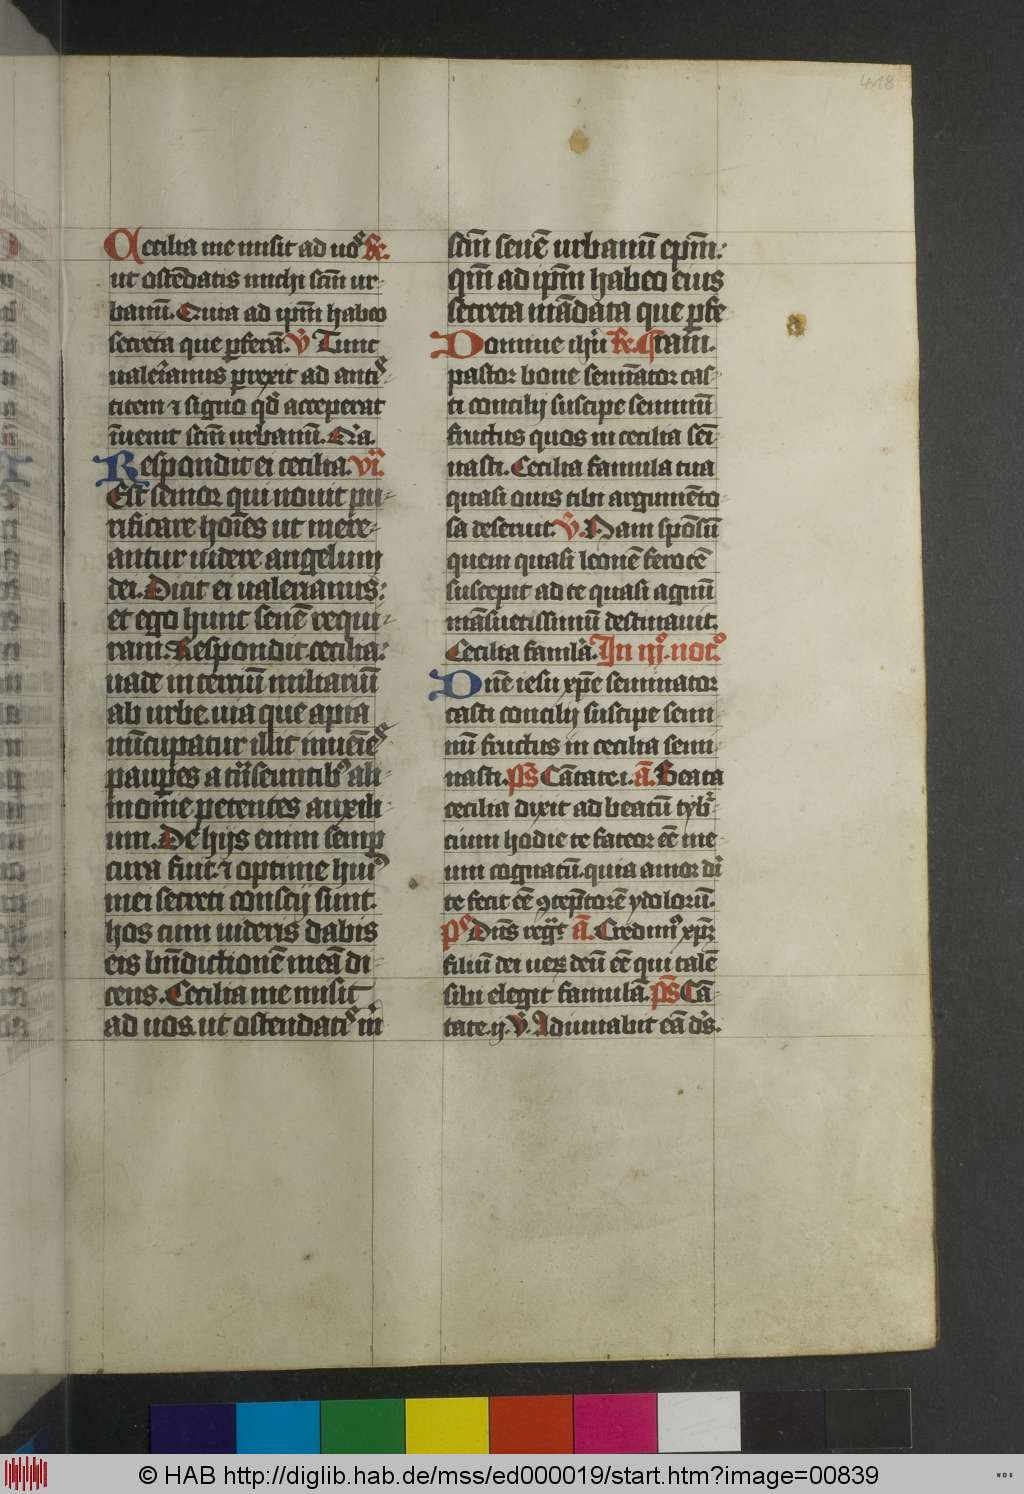 418
Cecilia me misit ad uos R̃.
ut ostēdatis michi sc̄m ur-
banū. Quia ad ip̄m habeo
secreta que ꝑferā. V̄ Tunc
ualerianus ꝑrexit ad antis-
titem ⁊ signo qd̓ acceperat
īuenit sc̄m urbanū. Q̓a.
Respondit ei cecilia. vi͛.
Est senior qui nouit pu-
rificare hoīes ut mere-
antur uidere angelum
dei. Dicit ei ualerianus:
et ego hunc senē requi-
ram. Respondit cecilia:
uade in terciū miliariū
ab urbe uia que apia
nūcupatur illic inueīes
pauꝑes a trāseuntibꝰ ali-
moniē petentes auxili-
um. De hijs enim semꝑ
cura fuit ⁊ optime huiꝰ
mei secreti conscij sunt.
hos cum uideris dabis
eis bn̄dictionē meā di-
cens. Cecilia me misit
ad uos ut ostendatis m̓
sc̄m senē urbanū ep̄m:
qm̄ ad ip̄m habeo eius
secreta mādata que ꝑfe
Domine ih̓u R̃. ram.
pastor bone seminator cas-
ti concilij suscipe seminū
fructus quos in cecilia semi-
nasti. Cecilia famula tua
quasi ouis tibi argumēto
sa deseruit. V̄. Nam spōsū
quem quasi leonē ferocē
suscepit ad te quasi agnū
māsuetissimū destinauit.
Cecilia famlā. In iijͦ. noct̓.
Dn̄e iesu xp̄e seminator
casti concilij suscipe semi-
nū fructus in cecilia semi-
nasti. ps̄ Cātate .i. ā. Beata
cecilia dixit ad beatū tyb̓-
cium hodie te fateor eē me-
um cognatū. quia amor dī
te fecit eē ꝯtēptorē ydolorū.
ps̓ Dn̄s reg̓ ā. Credimꝰ xp̄m
filiū dei uerū deū eē qui talē
sibi elegit famulā. ps̄ Cā-
tate .ij. V̄. Adiuuabit eā d̓s.
© HAB http://diglib.hab.de/mss/ed000019/start.htm?image=00839